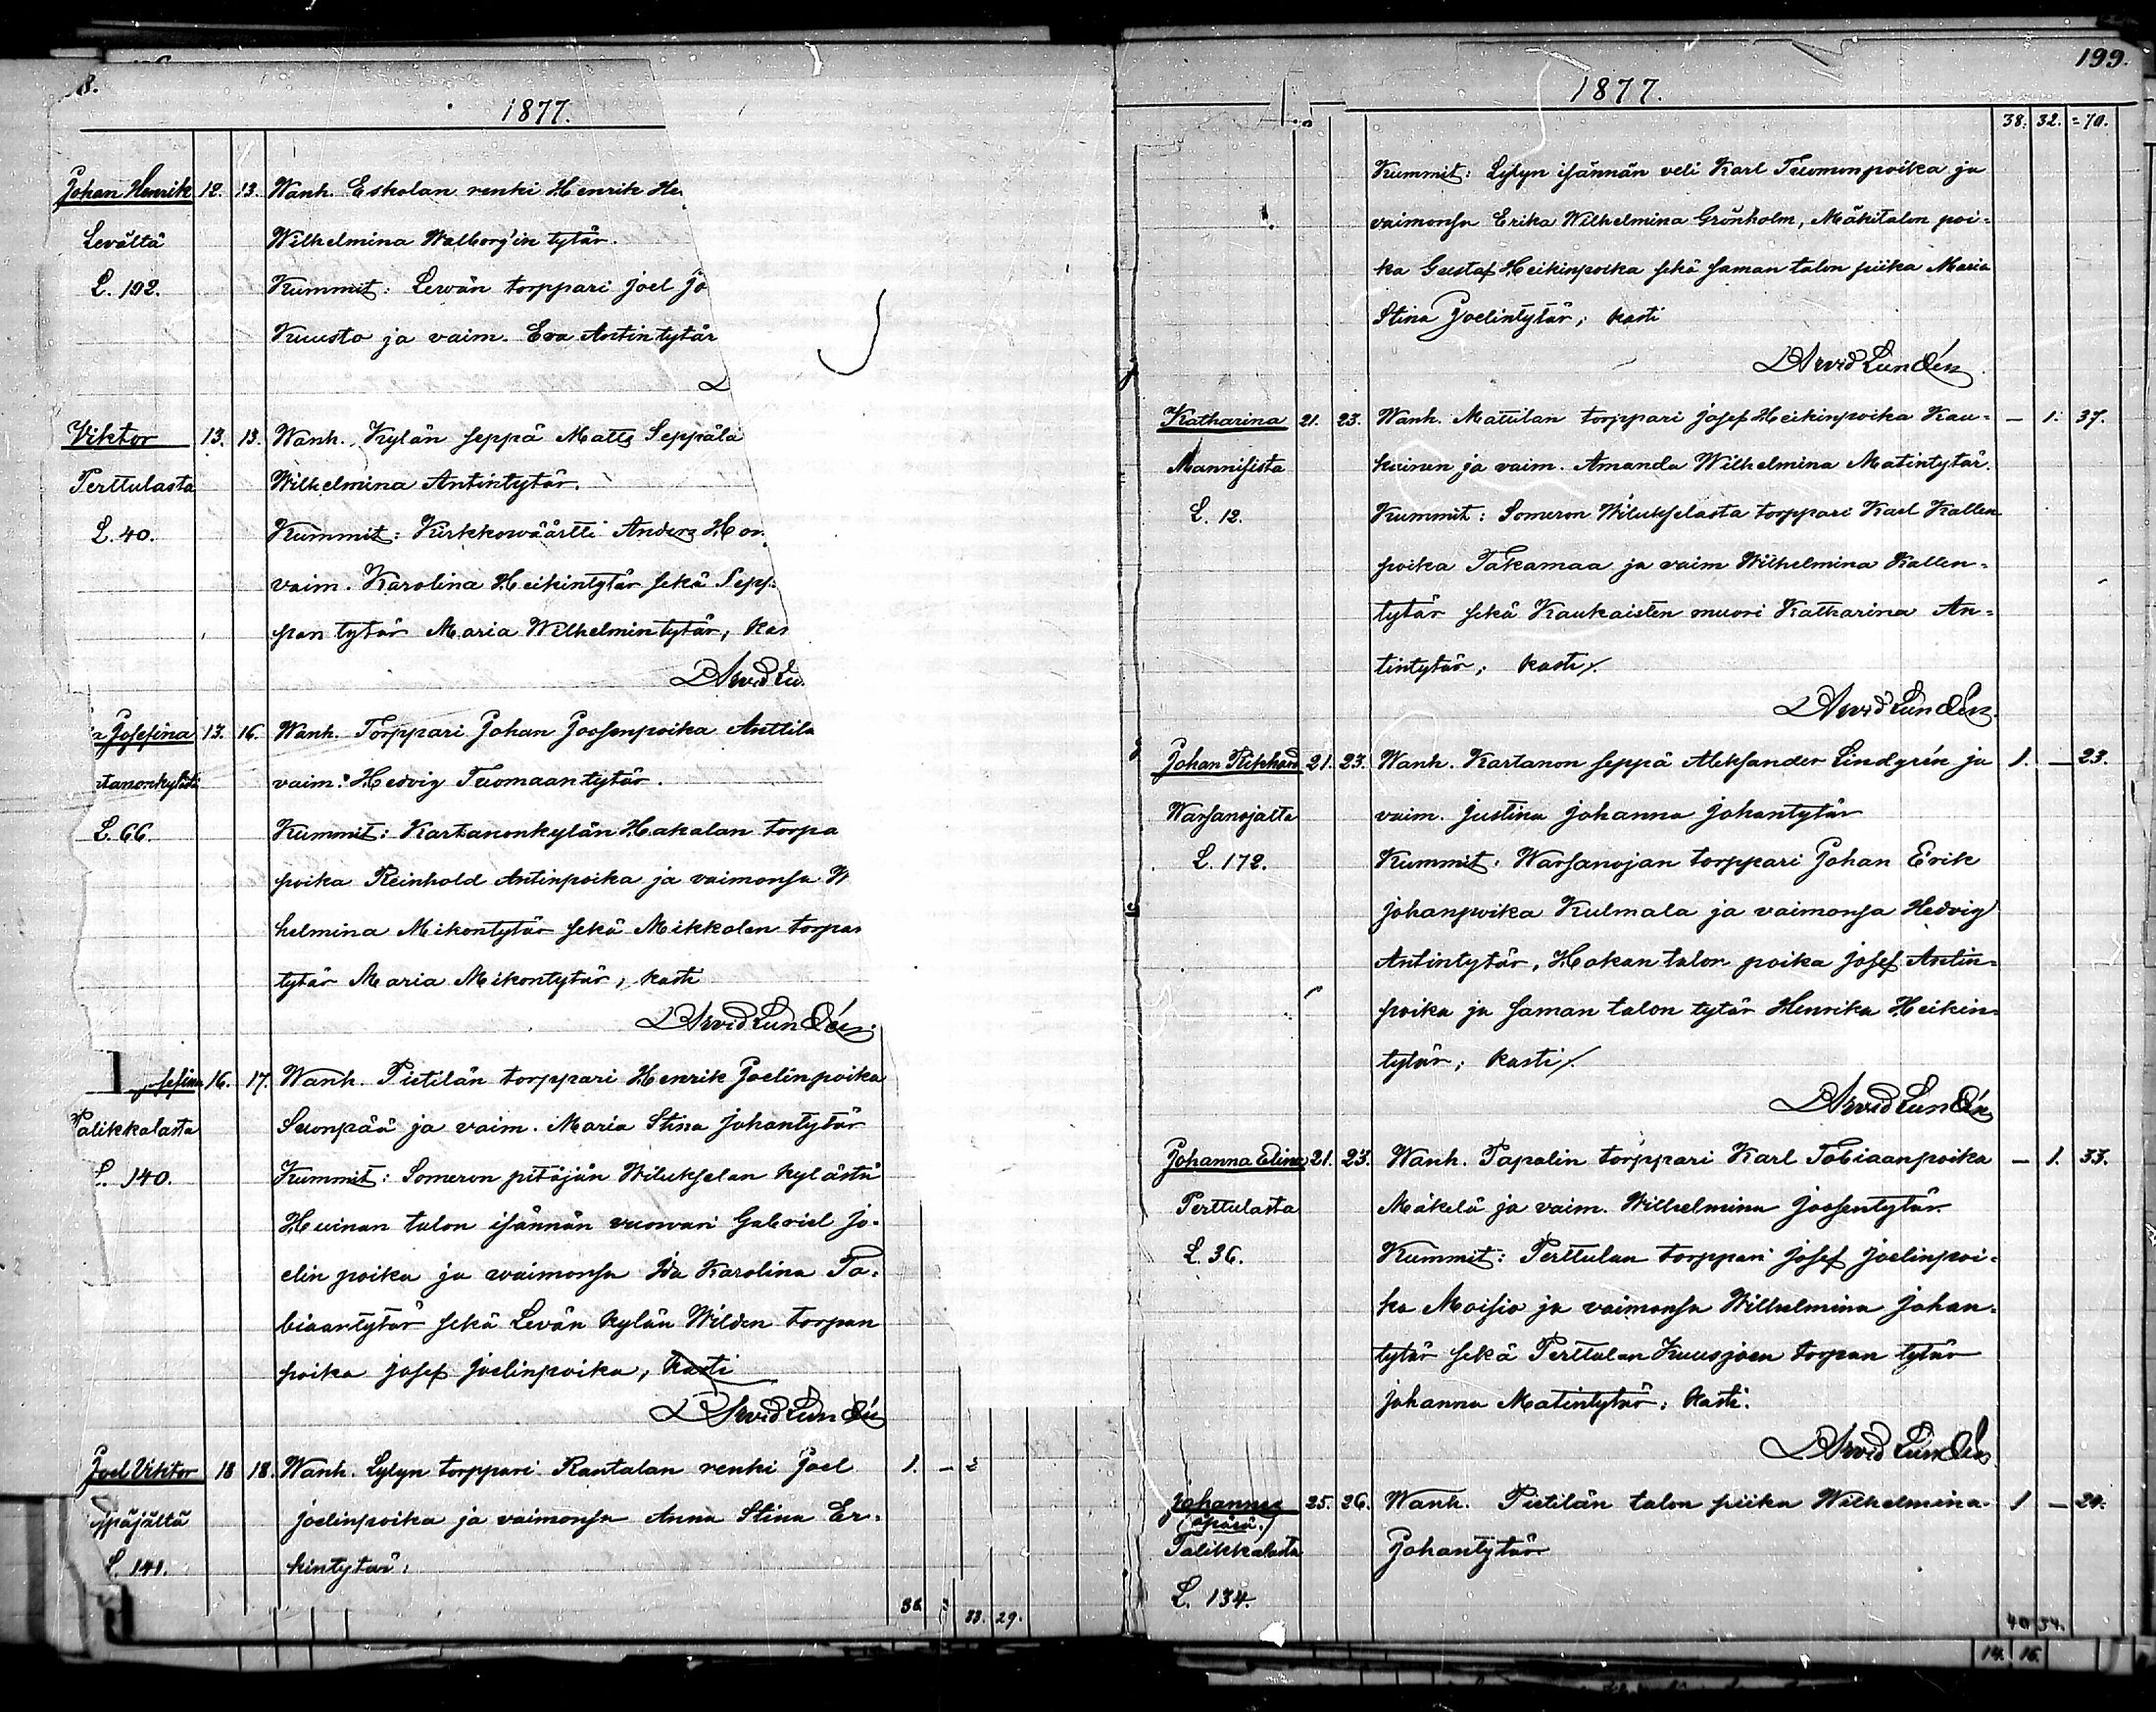 8.
1877.
Johan Henrik 12. 13. Wanh. Eskolan renki Henrik He
Levältä Wilhelmina Walborg'in tytär.
L. 192. Kummit: Lewän torppari Joel Jo
Kuusto ja vaim. Eva Antintytär
Viktor 13. 13. Wanh. Kylän seppä Matts Seppälä
Perttulasta Wilhelmina Antintytär.
L. 40. Kummit: Kirkkowäärtti Anders Hon
vaim. Karolina Heikintytär sekä Sepp:
pan tytär Maria Wilhelmintytär, kas
Arvid Lu
a Josefina 13. 16. Wanh. Torppari Johan Joosenpoika Anttila
rtanonkylästä vaim. Hedvig Tuomaantytär.
L. 66. Kummit: Kartanonkylän Hakalan torpa
poika Reinhold Antinpoika ja vaimonsa W
helmina Mikontytär sekä Mikkolan torpan
tytär Maria Mikontytär, kasti
Arvid Lundén.
osefina 16. 17. Wanh. Pietilän torppari Henrik Joelinpoika
Palikkalasta Suonpää ja vaim. Maria Stina Johantytär
L. 140. Kummit: Someron pitäjän Wilukselan kylästä
Huinan talon isännän vuowari Gabriel Jo-
elin poika ja waimonsa Ida Karolina To-
biaantytär sekä Levän kylän Wilden torpan
poika Josef Joelinpoika, kasti
Arvid Lundén
Joel Viktor 18 18. Wanh. Lylyn torppari Rantalan renki Joel 1. –
ypäjältä Joelinpoika ja vaimonsa Anna Stina Er-
L. 141. kintytär.
33. 29.
199.
1877.
38. 32. = 70.
Kummit: Lylyn isännän veli Karl Tuomonpoika ja
vaimonsa Erika Wilhelmina Grönholm, Mäkitalon poi-
ka Gustaf Heikinpoika sekä saman talon piika Maria
Stina Joelintytär; kasti
Arvid Lundén
Katharina 21. 23. Wanh. Mattilan torppari Josef Heikinpoika Kau- – 1. 37.
Mannisista kainen ja vaim. Amanda Wilhelmina Matintytär.
L. 12. Kummit: Someron Wilukselasta torppari Karl Kallen
poika Takamaa ja vaim Wilhelmina Kallen-
tytär sekä Kaukaisten muori Katharina An-
tintytär; kasti.
Arvid Lundén.
Johan Stephan 21. 23. Wanh. Kartanon seppä Aleksander Lindgrén ja 1. – 23.
Warsanojalta vaim. Justina Johanna Johantytär
L. 172. Kummit: Warsanojan torppari Johan Erik
Johanpoika Kulmala ja vaimonsa Hedvig
Antintytär, Hakan talon poika Josef Antin-
poika ja saman talon tytär Henrika Heikin-
tytär; kasti.
Arvid Lundén
Johanna Elina 21. 23. Wanh. Papalin torppari Karl Tobiaanpoika – 1. 33.
Perttulasta Mäkelä ja vaim. Wilhelmina Joosentytär
L. 36. Kummit: Perttulan torppari Josef Joelinpoi-
ka Moisio ja vaimonsa Wilhelmina Johan-
tytär sekä Perttulan Kuusjoen torpan tytär
Johanna Matintytär; kasti.
Arvid Lundén
Johannes 25. 26. Wanh. Pietilän talon piika Wilhelmina 1 –
(äpärä.) Johantytär
Palikkalasta
L. 134.
40 34.
14. 16.